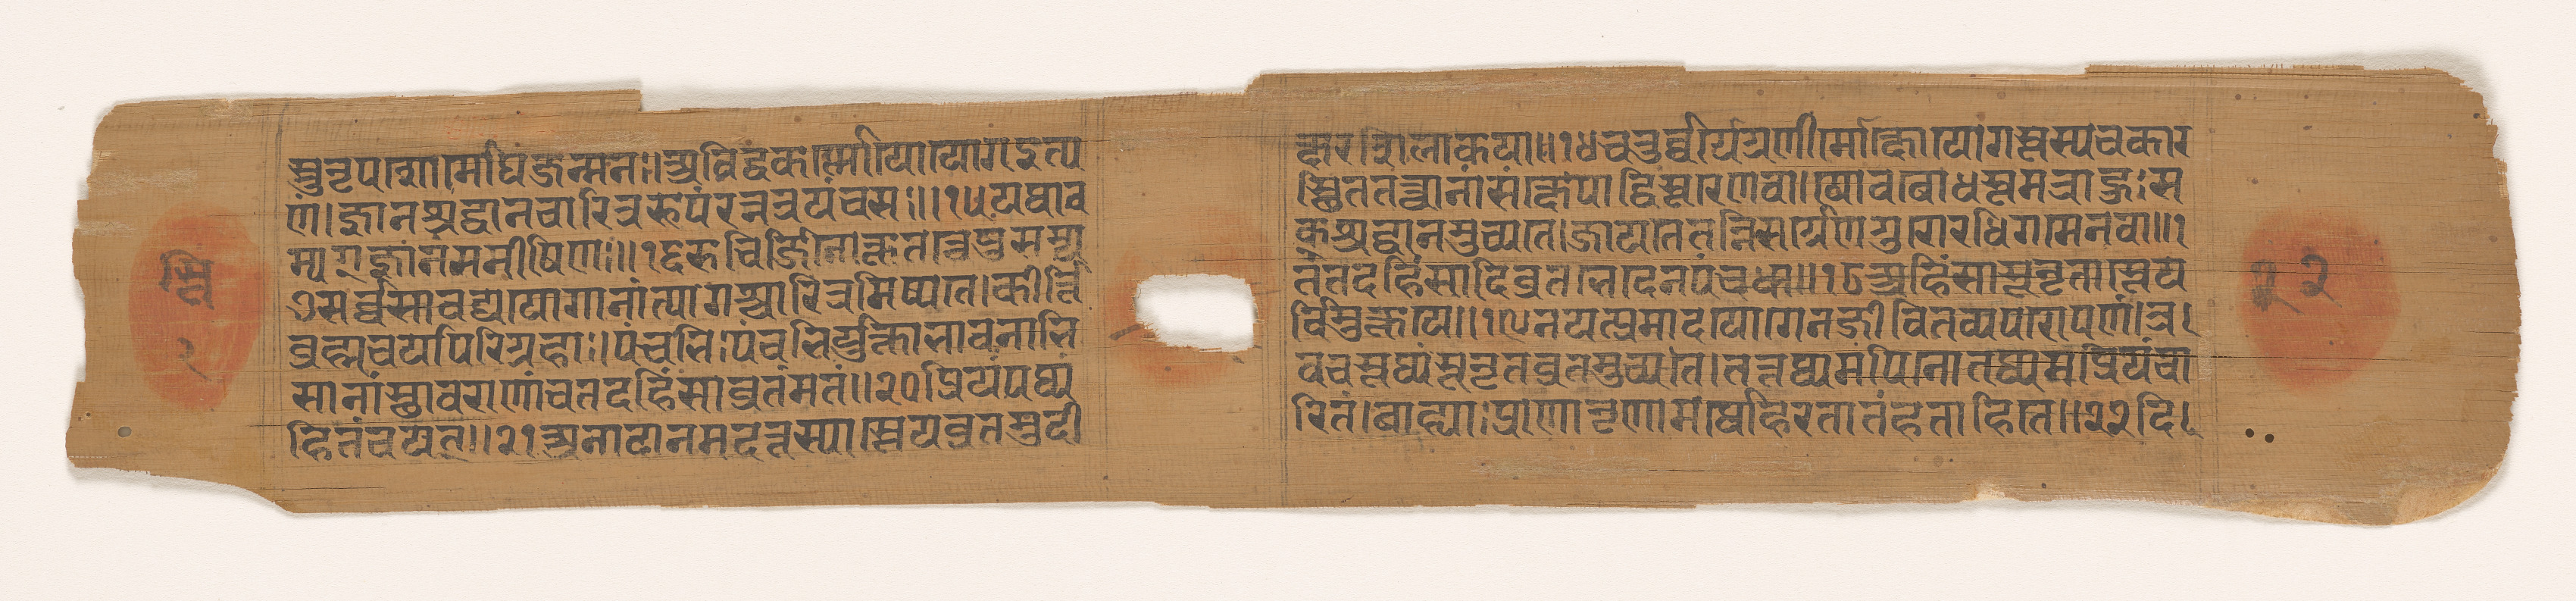 स्तु नृपशोर्मोघजन्मनः। अविद्धकर्णो यो योग इत्यक्षरशलाकया॥१४ चतुर्वर्गेग्रणीर्मोक्षो योगस्तस्य च कार
णं। ज्ञानश्रद्धानचारित्ररूपं रत्नत्रयं च सः॥१५ यथावस्थिततत्त्वानां संक्षेपाद्विस्तरेण वा। योवबोधस्तमत्राहुः स
म्यग्ज्ञानं मनीषिणः॥१६ रुचिर्जिनोक्ततत्त्वेषु सम्यक् श्रद्धानमुच्यते। जायते तन्निसर्गेण गुरोरधिगमेन वा॥१
७ सर्वसावद्ययोगानां त्यागश्चारित्रमिष्यते। कीर्त्तितं तदहिंसादिव्रतभेदेन पंचधा॥१८ अहिंसासूनृतास्तेय
ब्रह्मचर्यापरिग्रहाः। पंचभिः पंचभिर्युक्ता भावनाभिर्विमुक्तये॥१९ न यत्प्रमादयोगेन जीवितव्यपरोपणं। त्र
सानां स्थावराणां च तदहिंसाव्रतं मतं॥२० प्रियं पथ्यं वचस्तथ्यं सूनृतव्रतमुच्यते। तत्तथ्यमपि नो तथ्यमप्रियं चा
हितं च यत्॥२१ अनादानमदत्तस्यास्तेयव्रतमुदीरितं। बाह्याः प्राणा नृणामर्थो हरता तं हता हि ते॥२२ दि
२